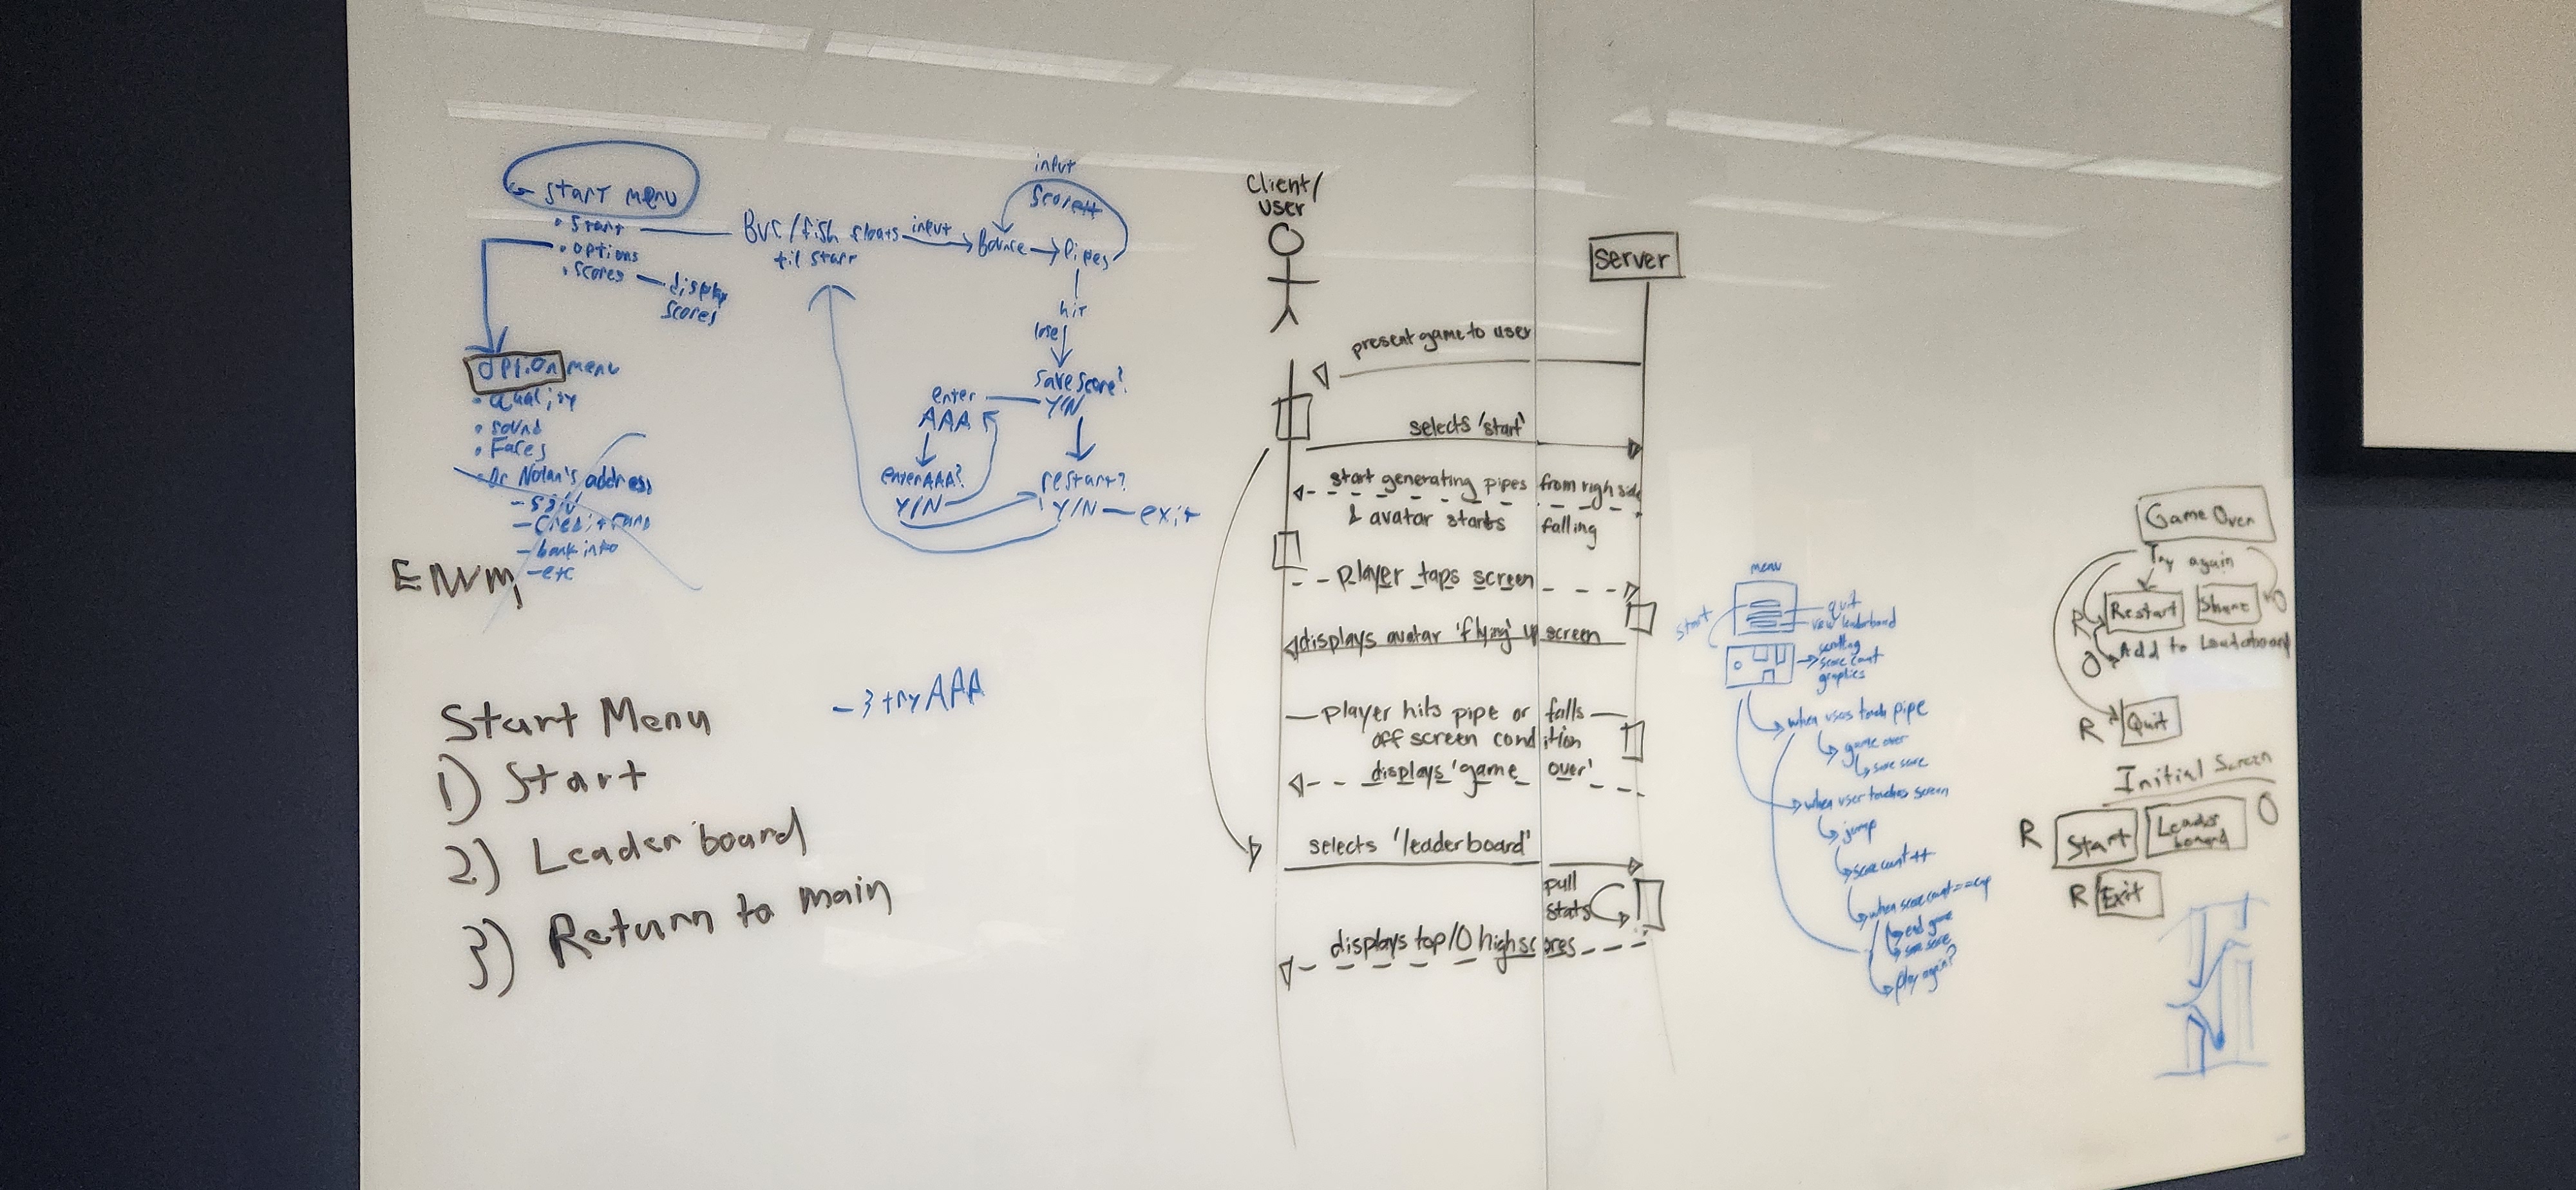 start menu
• Start
• options
• Scores
display
scores
/fish floats
til start
input
Bounce
Pipes
input
Score++
hit
lose
save score?
Y/N
enter
AAA
enter AAA?
Y/N
restart?
Y/N
exit
option menu
• Quality
• sound
• Faces
• Dr Nolan's address
- SSN
- Credit card
- bank info
- etc
Start Menu
1) Start
2) Leader board
3) Return to main
- 3 try AAA
Client/
user
server
present game to user
selects 'start'
start generating pipes from righ side
& avatar starts falling
player taps screen
displays avatar 'flying' up screen
player hits pipe or falls
off screen condition
displays 'game over'
selects 'leaderboard'
pull
stats
displays top 10 highscores
menu
start
quit
view leaderboard
scrolling
score count
graphics
when user touch pipe
game over
save score
when user touches screen
jump
score count ++
when score count == cap
end game
save score
play again?
Game Over
Try again
R
Restart
Share
O
O
Add to Leaderboard
R
Quit
Initial Screen
R
Start
Leader
board
O
R
Exit